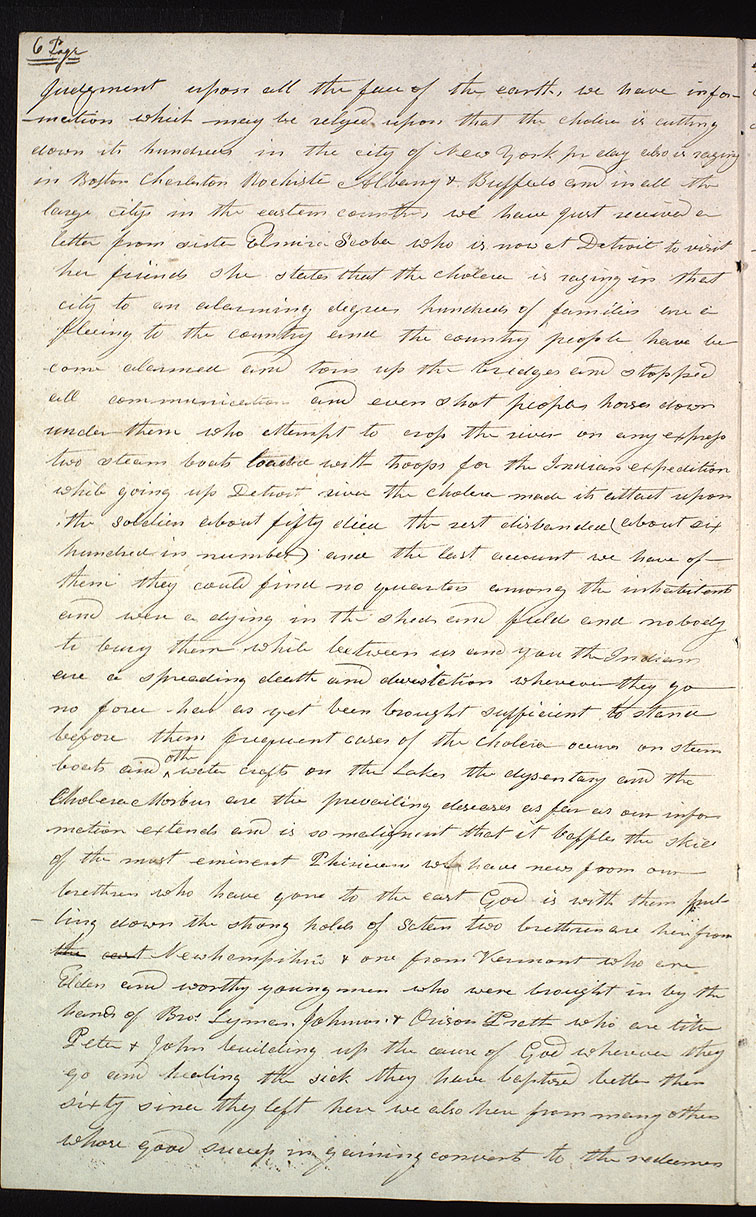 6 Page
Judgment upon all the face of the earth, we have infor-
-mation which may be relyed upon that the cholera is cutting
down its hundreds in the city of New York pr day also is raging
in Boston Charleston Rochiste Albany & Buffelo and in all the
large citys in the eastern countres we have just received a
letter from sister Elmira Scobe who is now at Detroit to visit
her friends she states that the cholera is raging in that
city to an alarming degree hundreds of families are a
fleeing to the country and the country people have be
come alarmed and torn up the bridges and stopped
all communication and even shot peoples horses down
under them who attempt to crop the river on any express
two steam boats loaded with troops for the Indian expedition
while going up Detroit river the cholera made its attact upon
the soldiers about fifty died the rest disbanded (about six
hundred in number) and the last account we have of
them they could find no quarters among the inhabitants
and were a dying in the sheds and fields and nobody
to bury them while between us and you the Indians
are a spreading death and devistation wherever they go
no force has as yet been brought sufficient to stand
before them frequent cases of the cholera occurs on steem
boats and other water crafts on the Lakes the dysentary and the
Cholera Morbus are the prevailing deseases as far as our infor
mation extends and is so malignent that it baffles the skill
of the most eminent Phisicians we have news from our
brethren who have gone to the east God is with them pul-
ling down the strong holds of Saten two brethren are here from
the east Newhampshire & one from Vermont who are
Elders and worthy young men who were brought in by the
hands of Bro's Lyman Johnson & Orison Pratt who are like
Peter & John building up the cause of God wherever they
go and healing the sick they have baptised better then
sixty since they left here we also here from many others
whose good success in gaining convert to the redeemes